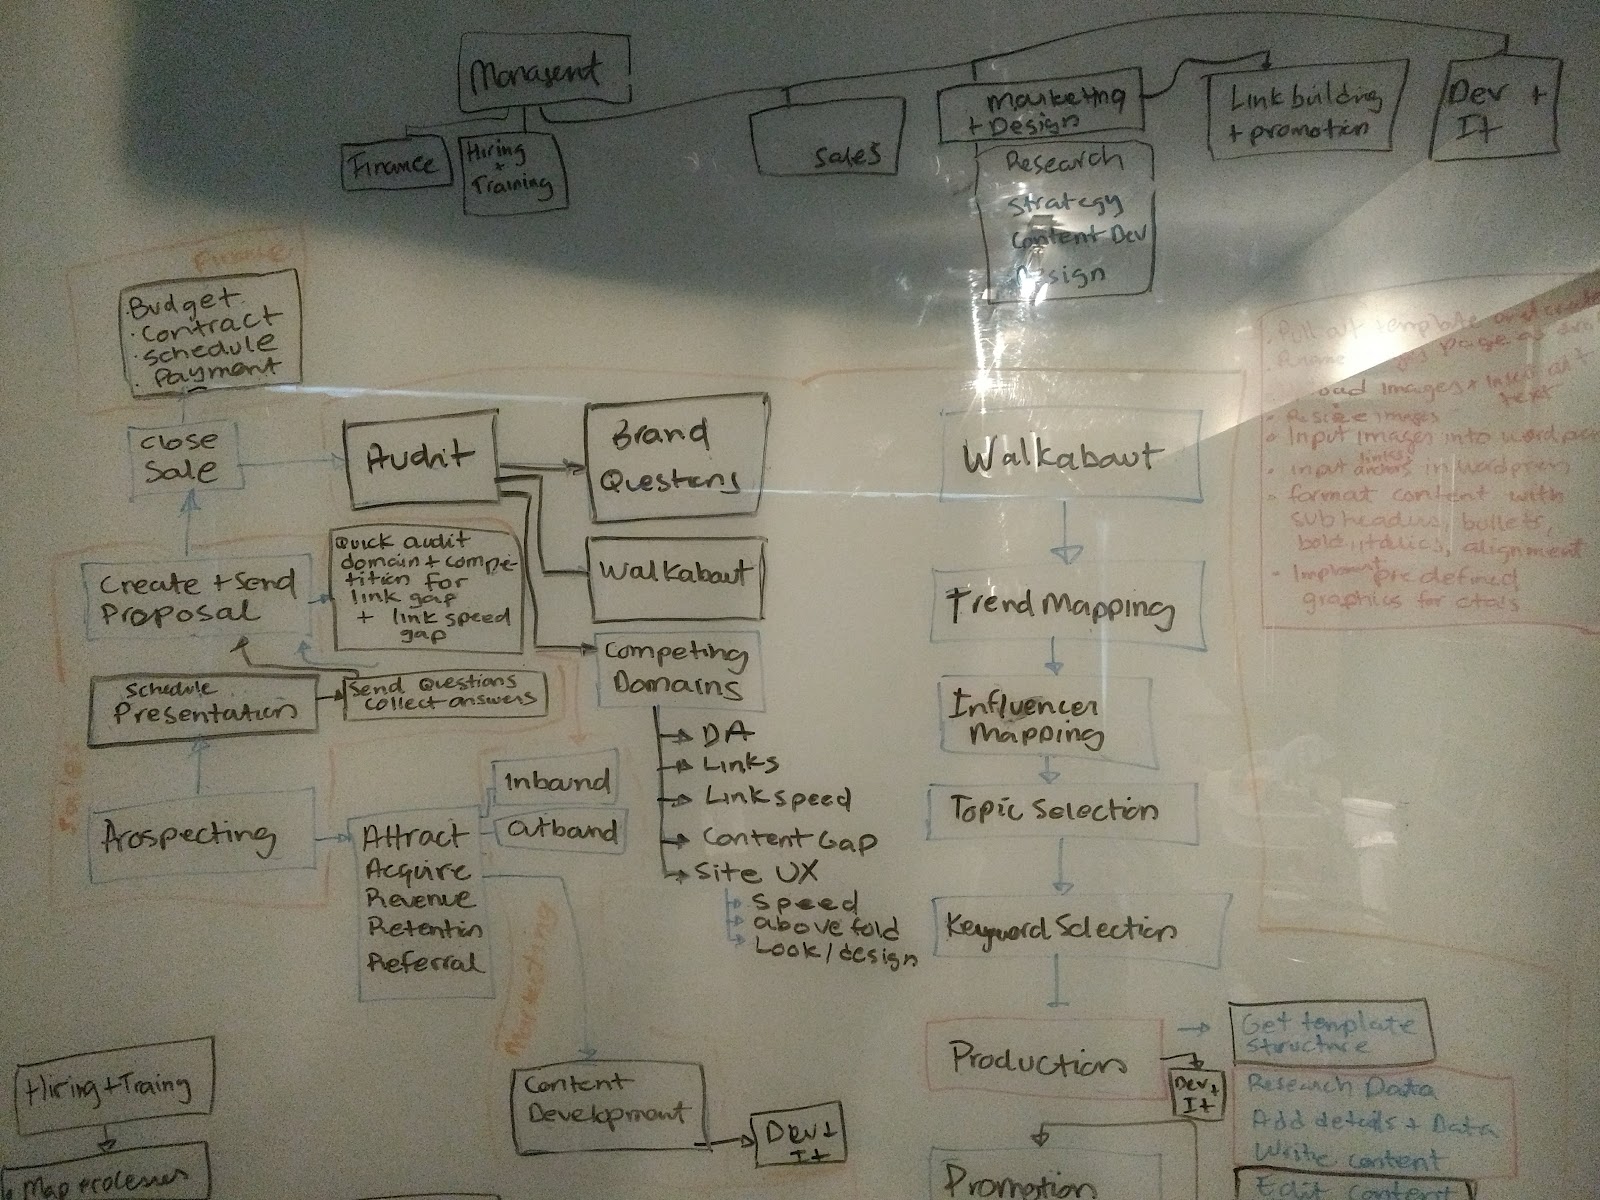 Managent
Finance
Hiring
+
Training
Sales
Marketing
+ Design
Research
Strategy
Content Dev
Design
Link building
+ promotion
Dev +
It
Finance
· Budget
· Contract
· Schedule
· Payment
Close
Sale
Audit
Brand
Questions
Walkabout
Create + Send
Proposal
Quick audit
domain + compe-
tition for
link gap
+ link speed
gap
Schedule
Presentation
Send Questions
Collect answers
Competing
Domains
DA
Links
Link speed
Content Gap
Site UX
Speed
above fold
Look / design
Sales
Prospecting
Attract
Acquire
Revenue
Retention
Referral
Inbound
Outbound
Marketing
Content
Development
Dev +
It
Hiring + Traing
Map processes
Walkabout
Trend Mapping
Influencer
Mapping
Topic Selection
Keyword Selection
Production
Dev +
It
Promotion
Get template
structure
Research Data
Add details + Data
Write content
Edit content
template
page as
images + insert alt
text
• Resize images
• Input images into wordpress
links +
• input anchors in wordpress
• format content with
sub headers, bullets,
bold, italics, alignment
• Implement pre defined
graphics for cta's